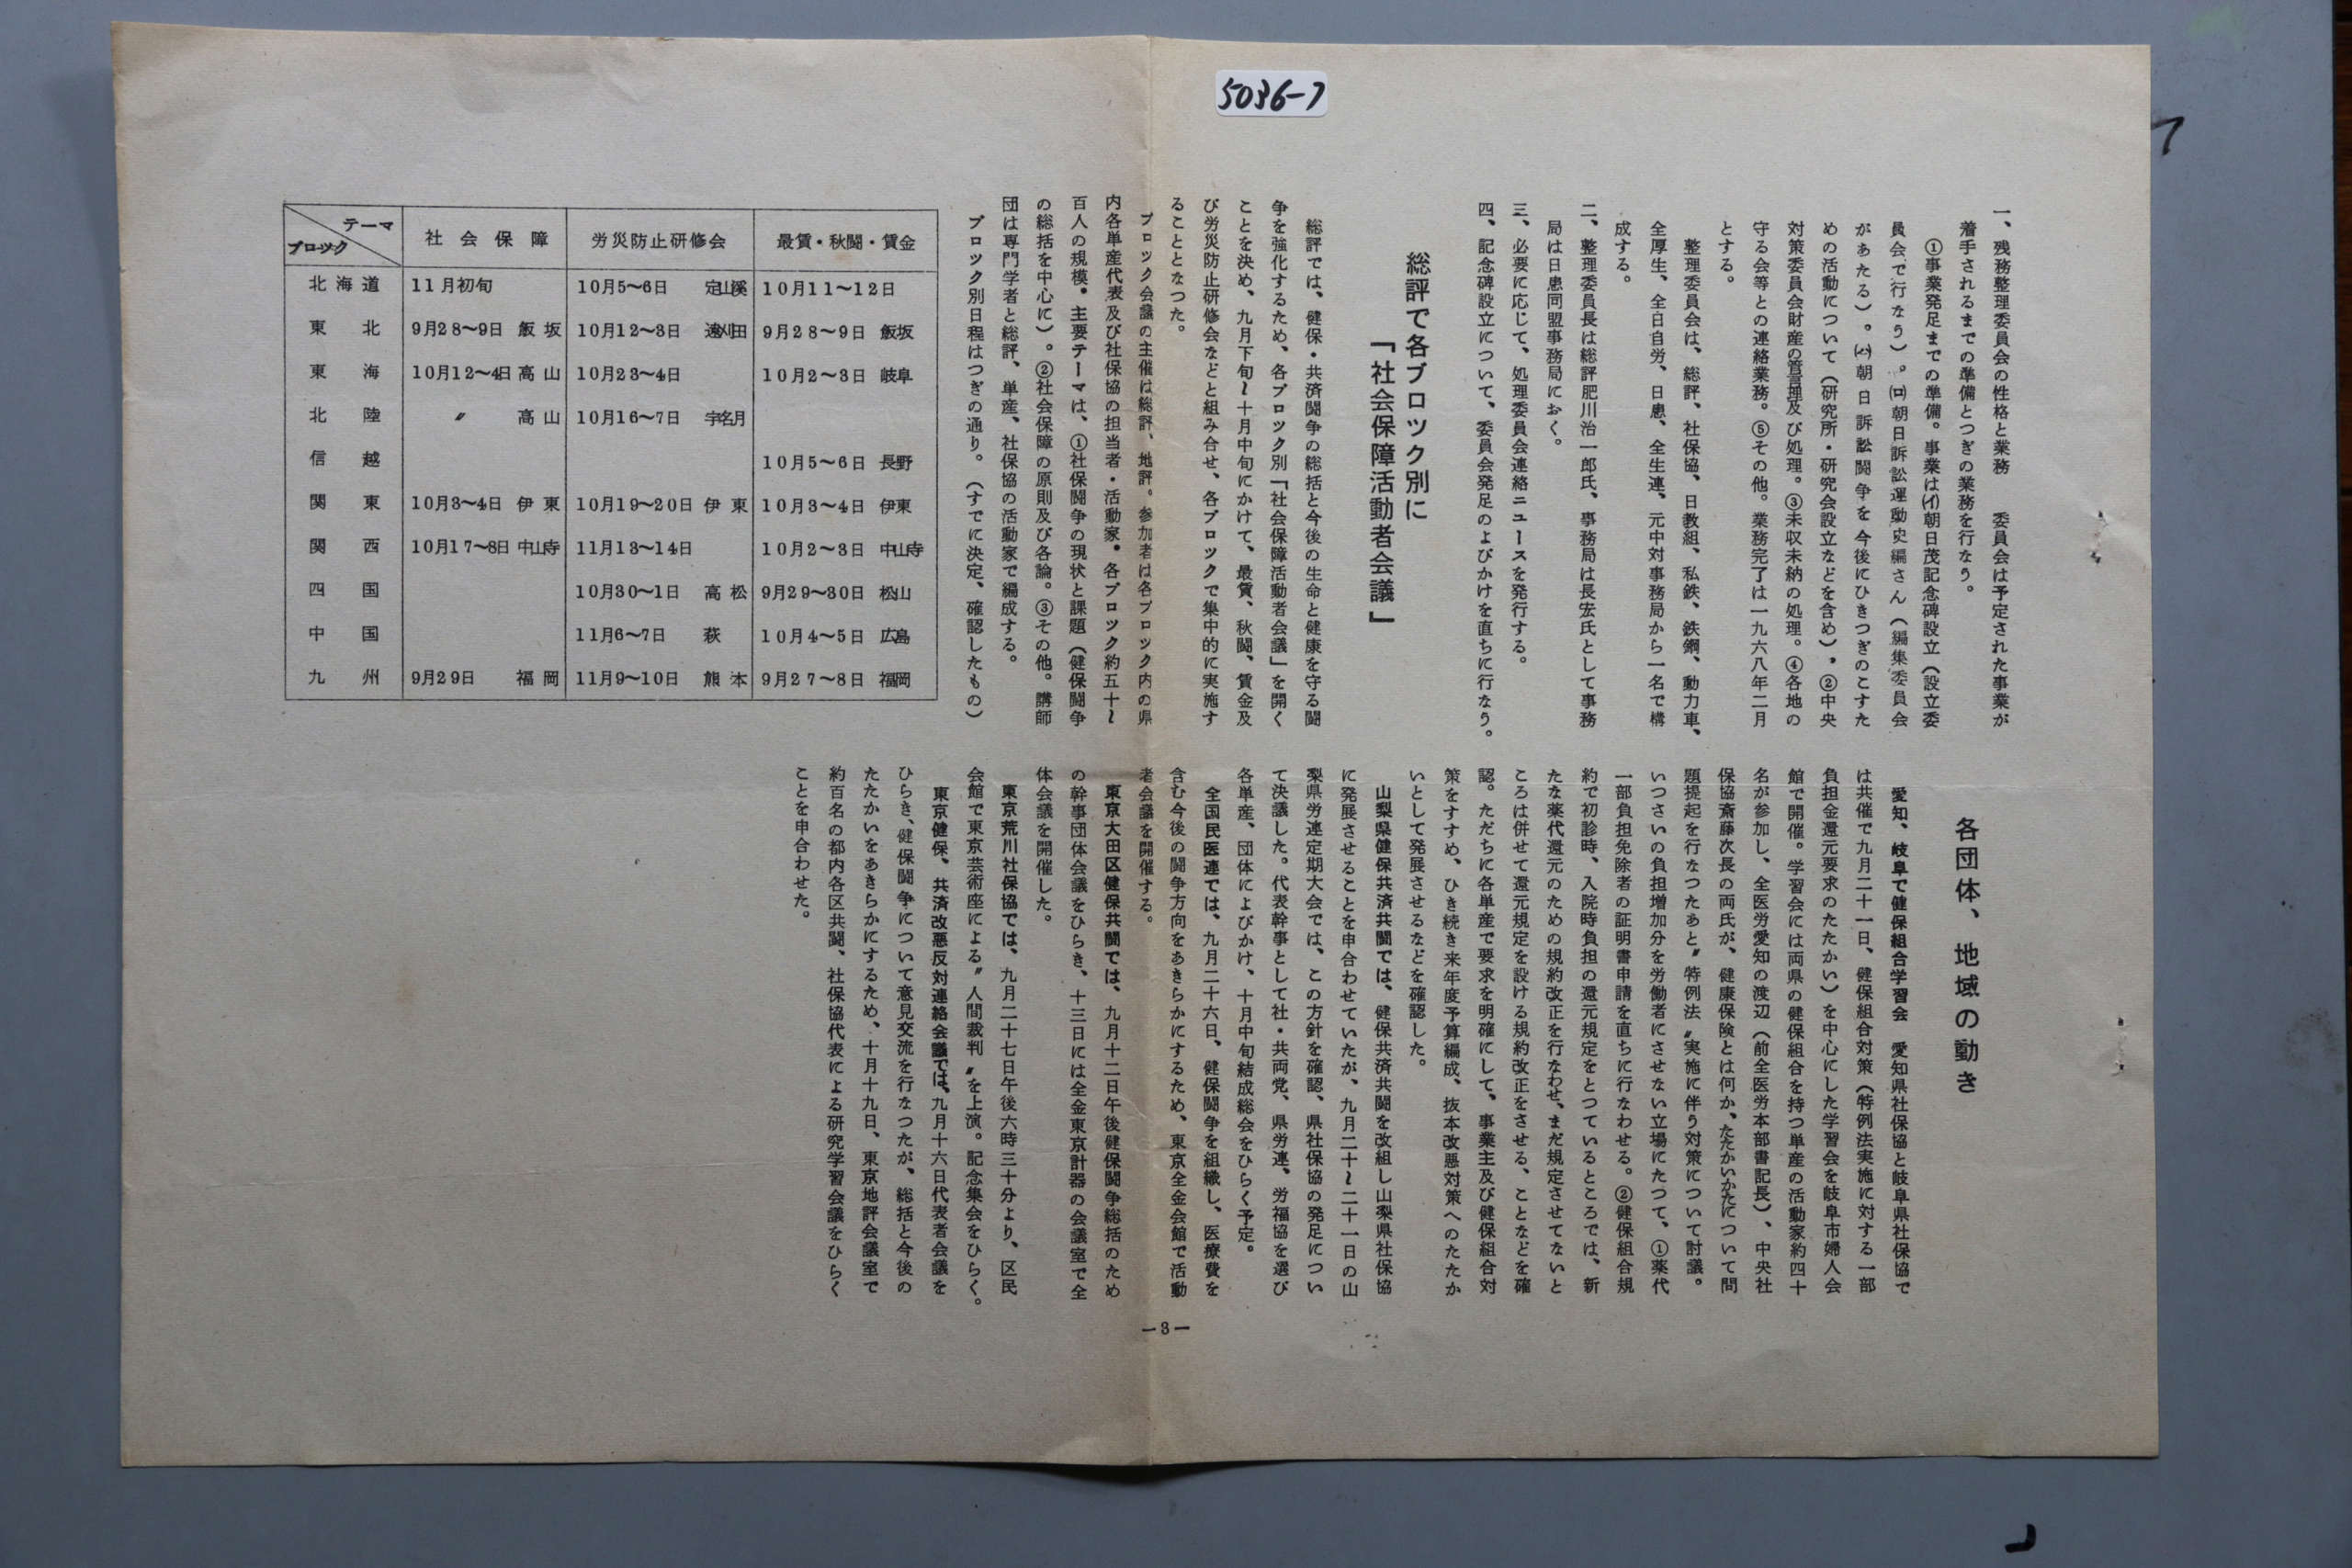 5036-7
一、残務整理委員会の性格と業務　委員会は予定された事業が
着手されるまでの準備とつぎの業務を行なう。
①事業発足までの準備。事業は(イ)朝日茂記念碑設立（設立委
員会で行なう）。(ロ)朝日訴訟運動史編さん（編集委員会
があたる）。(ハ)朝日訴訟闘争を今後にひきつぎのこすた
めの活動について（研究所・研究会設立などを含め）。②中央
対策委員会財産の管理及び処理。③未収未納の処理。④各地の
守る会等との連絡業務。⑤その他。業務完了は一九六八年二月
とする。
整理委員会は、総評、社保協、日教組、私鉄、鉄鋼、動力車、
全厚生、全日自労、日患、全生連、元中対事務局から一名で構
成する。
二、整理委員長は総評肥川治一郎氏、事務局は長宏氏として事務
局は日患同盟事務局におく。
三、必要に応じて、処理委員会連絡ニュースを発行する。
四、記念碑設立について、委員会発足のよびかけを直ちに行なう。
総評で各ブロック別に
「社会保障活動者会議」
総評では、健保・共済闘争の総括と今後の生命と健康を守る闘
争を強化するため、各ブロック別「社会保障活動者会議」を開く
ことを決め、九月下旬〜十月中旬にかけて、最賃、秋闘、賃金及
び労災防止研修会などと組み合せ、各ブロックで集中的に実施す
ることとなつた。
ブロック会議の主催は総評、地評。参加者は各ブロック内の県
内各単産代表及び社保協の担当者・活動家。各ブロック約五十〜
百人の規模。主要テーマは、①社保闘争の現状と課題（健保闘争
の総括を中心に）。②社会保障の原則及び各論。③その他。講師
団は専門学者と総評、単産、社保協の活動家で編成する。
ブロック別日程はつぎの通り。（すでに決定、確認したもの）
テーマ
ブロック　社会保障　労災防止研修会　最賃・秋闘・賃金
北海道　11月初旬　10月5〜6日　定山溪　10月11〜12日
東北　9月28〜9日　飯坂　10月12〜3日　遠刈田　9月28〜9日　飯坂
東海　10月12〜4日　高山　10月23〜4日　10月2〜3日　岐阜
北陸　〃　高山　10月16〜7日　宇名月
信越　10月5〜6日　長野
関東　10月3〜4日　伊東　10月19〜20日　伊東　10月3〜4日　伊東
関西　10月17〜8日　中山寺　11月13〜14日　10月2〜3日　中山寺
四国　10月30〜1日　高松　9月29〜30日　松山
中国　11月6〜7日　萩　10月4〜5日　広島
九州　9月29日　福岡　11月9〜10日　熊本　9月27〜8日　福岡
各団体、地域の動き
愛知、岐阜で健保組合学習会　愛知県社保協と岐阜県社保協で
は共催で九月二十一日、健保組合対策（特例法実施に対する一部
負担金還元要求のたたかい）を中心にした学習会を岐阜市婦人会
館で開催。学習会には両県の健保組合を持つ単産の活動家約四十
名が参加し、全医労愛知の渡辺（前全医労本部書記長）、中央社
保協斎藤次長の両氏が、健康保険とは何か、たたかいかたについて問
題提起を行なつたあと〝特例法〟実施に伴う対策について討議。
いつさいの負担増加分を労働者にさせない立場にたつて、①薬代
一部負担免除者の証明書申請を直ちに行なわせる。②健保組合規
約で初診時、入院時負担の還元規定をとつているところでは、新
たな薬代還元のための規約改正を行なわせ、まだ規定させてないと
ころは併せて還元規定を設ける規約改正をさせる、ことなどを確
認。ただちに各単産で要求を明確にして、事業主及び健保組合対
策をすすめ、ひき続き来年度予算編成、抜本改悪対策へのたたか
いとして発展させるなどを確認した。
山梨県健保共済共闘では、健保共済共闘を改組し山梨県社保協
に発展させることを申合わせていたが、九月二十〜二十一日の山
梨県労連定期大会では、この方針を確認、県社保協の発足につい
て決議した。代表幹事として社・共両党、県労連、労福協を選び
各単産、団体によびかけ、十月中旬結成総会をひらく予定。
全国民医連では、九月二十六日、健保闘争を組織し、医療費を
含む今後の闘争方向をあきらかにするため、東京全金会館で活動
者会議を開催する。
東京大田区健保共闘では、九月十二日午後健保闘争総括のため
の幹事団体会議をひらき、十三日には全金東京計器の会議室で全
体会議を開催した。
東京荒川社保協では、九月二十七日午後六時三十分より、区民
会館で東京芸術座による〝人間裁判〟を上演。記念集会をひらく。
東京健保、共済改悪反対連絡会議では、九月十六日代表者会議を
ひらき、健保闘争について意見交流を行なつたが、総括と今後の
たたかいをあきらかにするため、十月十九日、東京地評会議室で
約百名の都内各区共闘、社保協代表による研究学習会議をひらく
ことを申合わせた。
―3―